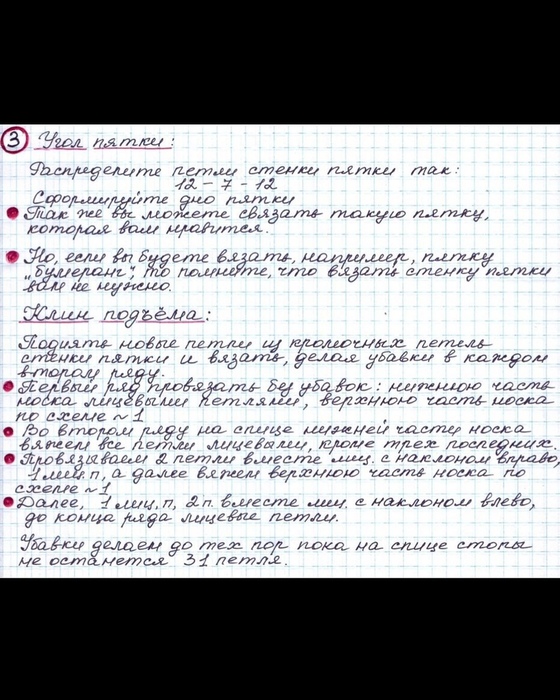 3 Угол пятки:
Распределите петли стенки пятки так:
12 - 7 - 12
Сформируйте дно пятки
Так же вы можете связать такую пятку,
которая вам нравится.
Но, если вы будете вязать, например, пятку
„бумеранг", то помните, что вязать стенку пятки
вам не нужно.
Клин подъёма:
Поднять новые петли из кромочных петель
стенки пятки и вязать, делая убавки в каждом
втором ряду.
Первый ряд провязать без убавок: нижнюю часть
носка лицевыми петлями, верхнюю часть носка
по схеме ~ 1
Во втором ряду на спице нижней части носка
вяжем все петли лицевыми, кроме трех последних.
Провязываем 2 петли вместе лиц. с наклоном вправо,
1 лиц. п, а далее вяжем верхнюю часть носка по
схеме ~ 1
Далее, 1 лиц. п, 2 п. вместе лиц. с наклоном влево,
до конца ряда лицевые петли.
Убавки делаем до тех пор пока на спице стопы
не останется 31 петля.